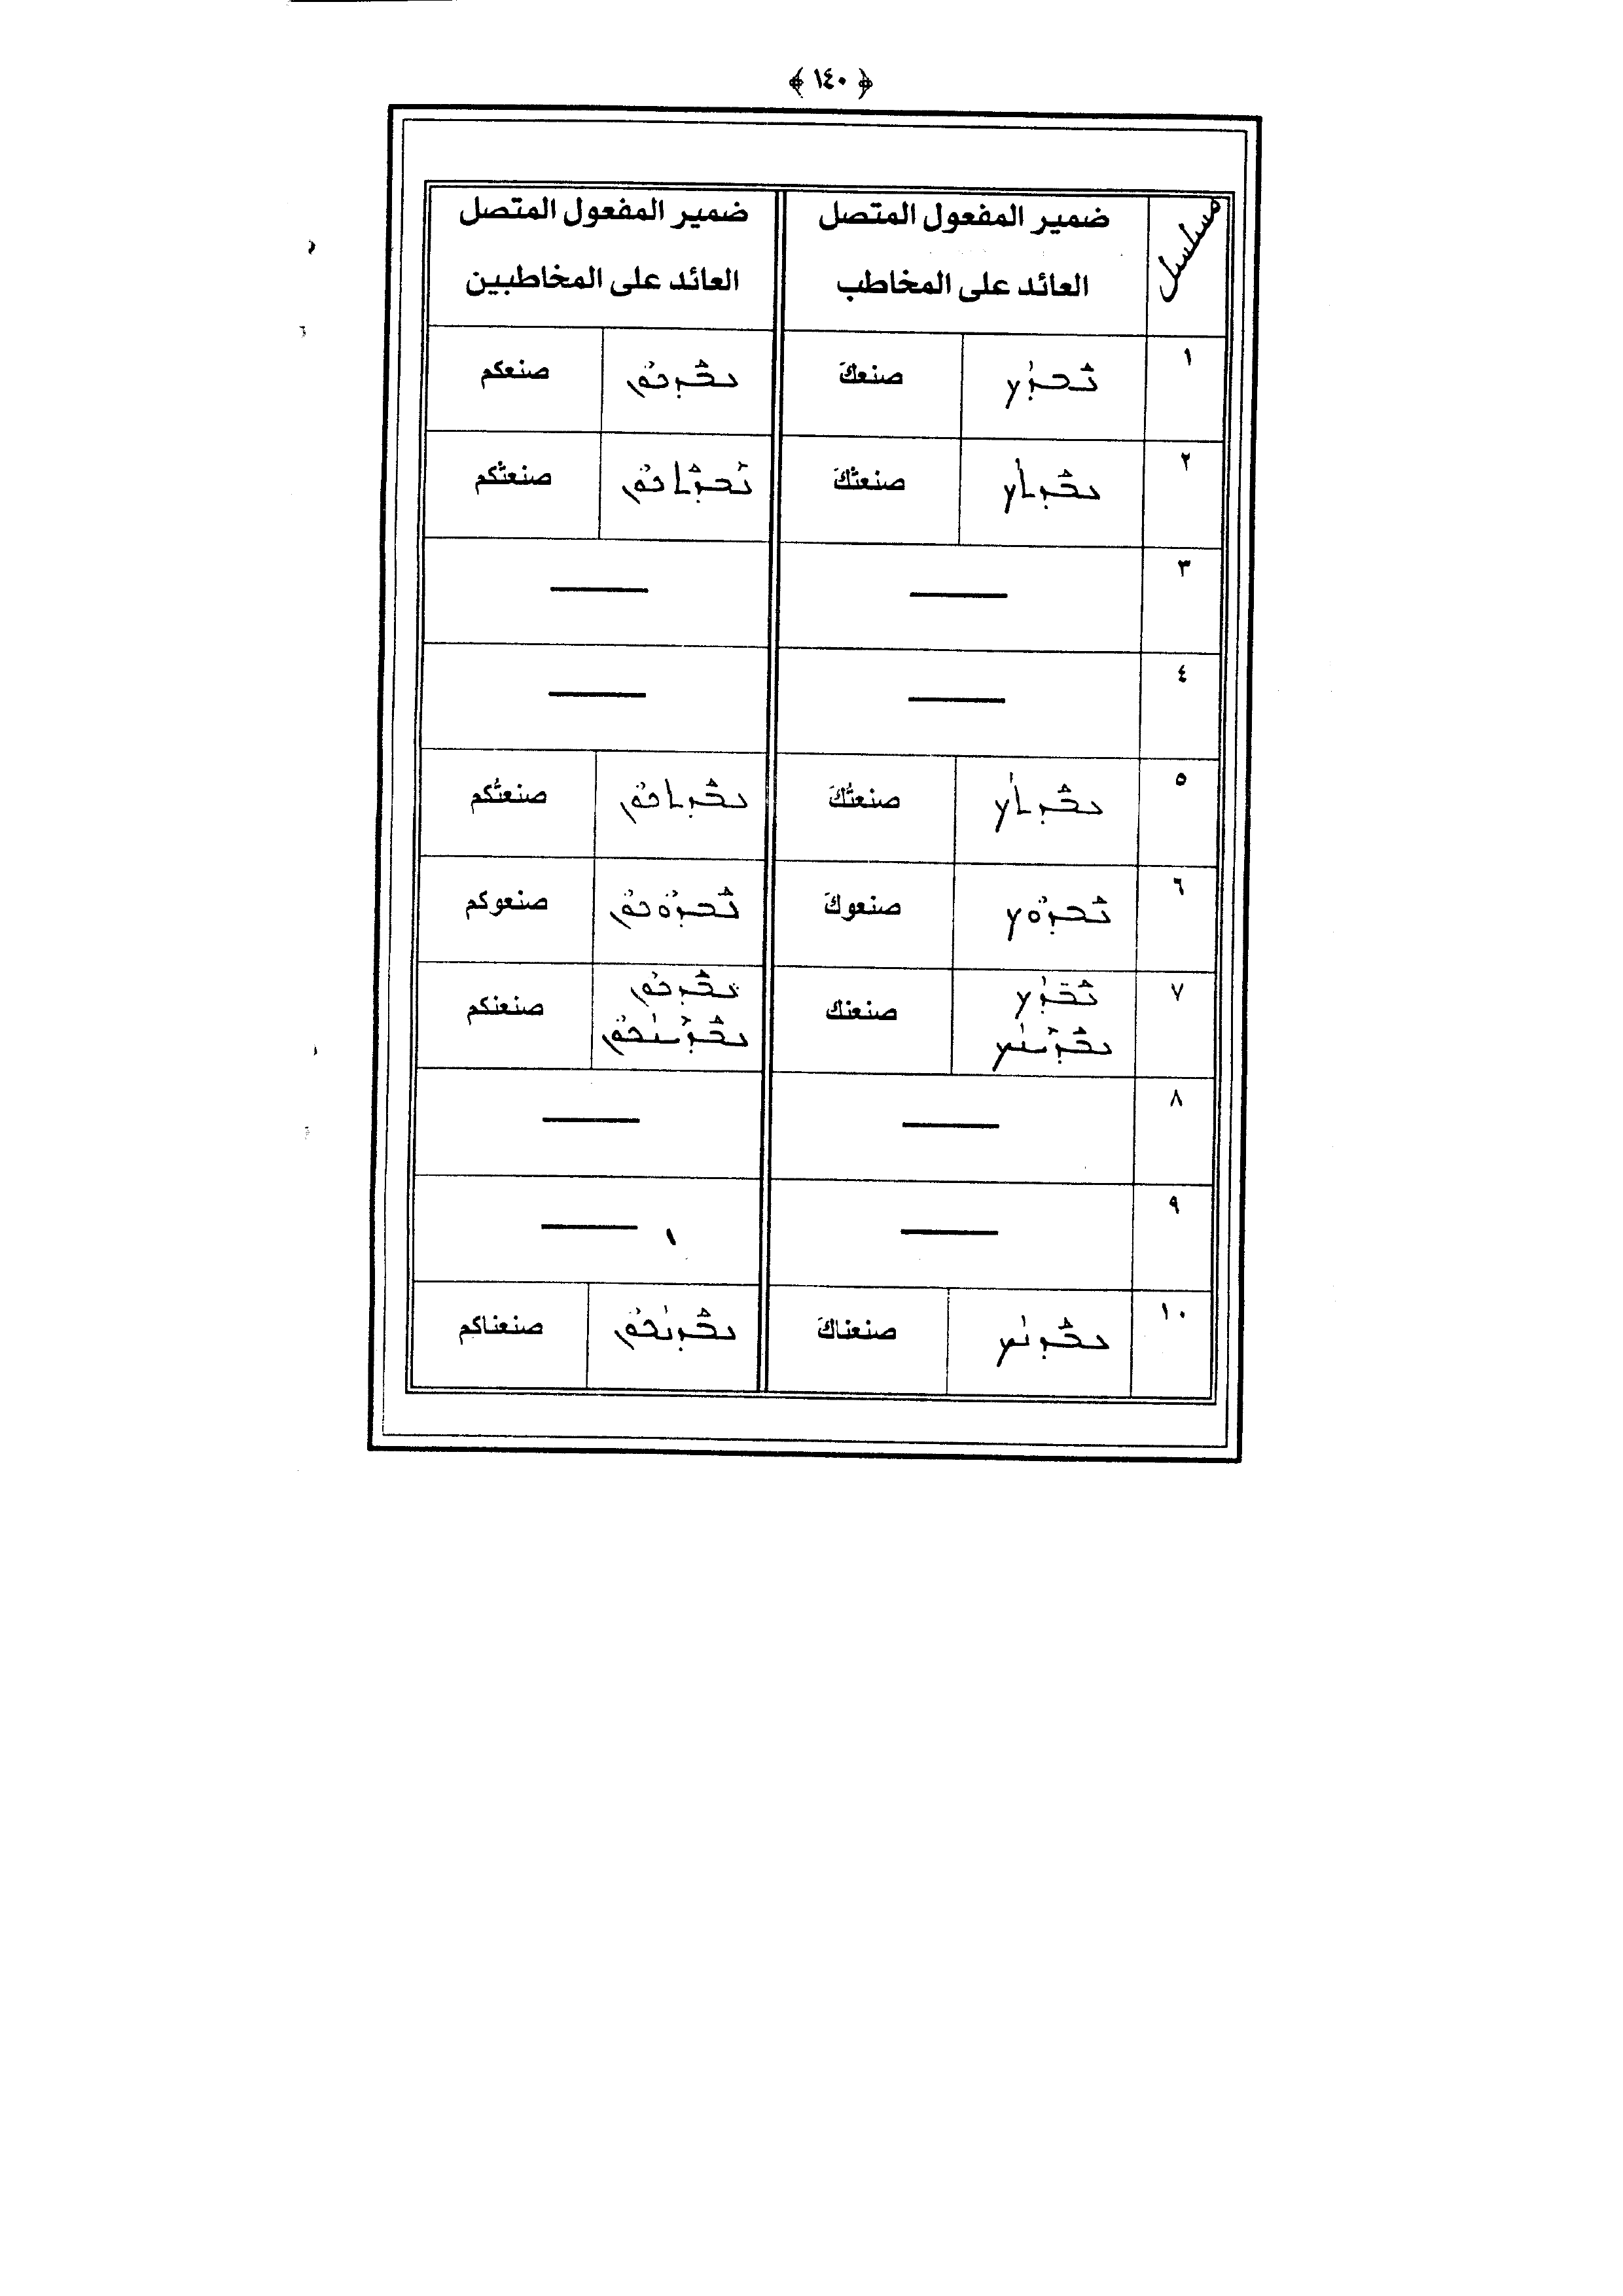 ﴿ ١٤٠ ﴾
مسلسل
ضمير المفعول المتصل
العائد على المخاطب
ضمير المفعول المتصل
العائد على المخاطبين
١ ܥܰܒܕܳܟ صنعكَ ܥܒܰܕܟܽܘܢ صنعكم
٢ ܥܒܰܕܬܳܟ صنعتْكَ ܥܶܒܕܰܬܟܽܘܢ صنعتْكم
٣ — —
٤ — —
٥ ܥܒܰܕܬܳܟ صنعتُكَ ܥܒܰܕܬܟܽܘܢ صنعتُكم
٦ ܥܰܒܕܽܘܟ صنعوكَ ܥܰܒܕܽܘܟܽܘܢ صنعوكم
٧ ܥܰܒ̈ܕܳܟ صنعنك ܥܒܰܕܟܽܘܢ صنعنكم
ܥܒܰܕܶܝܢܳܟ ܥܒܰܕܶܝܢܳܟܽܘܢ
٨ — —
٩ — —
١٠ ܥܒܰܕܢܳܟ صنعناكَ ܥܒܰܕܢܳܟܽܘܢ صنعناكم